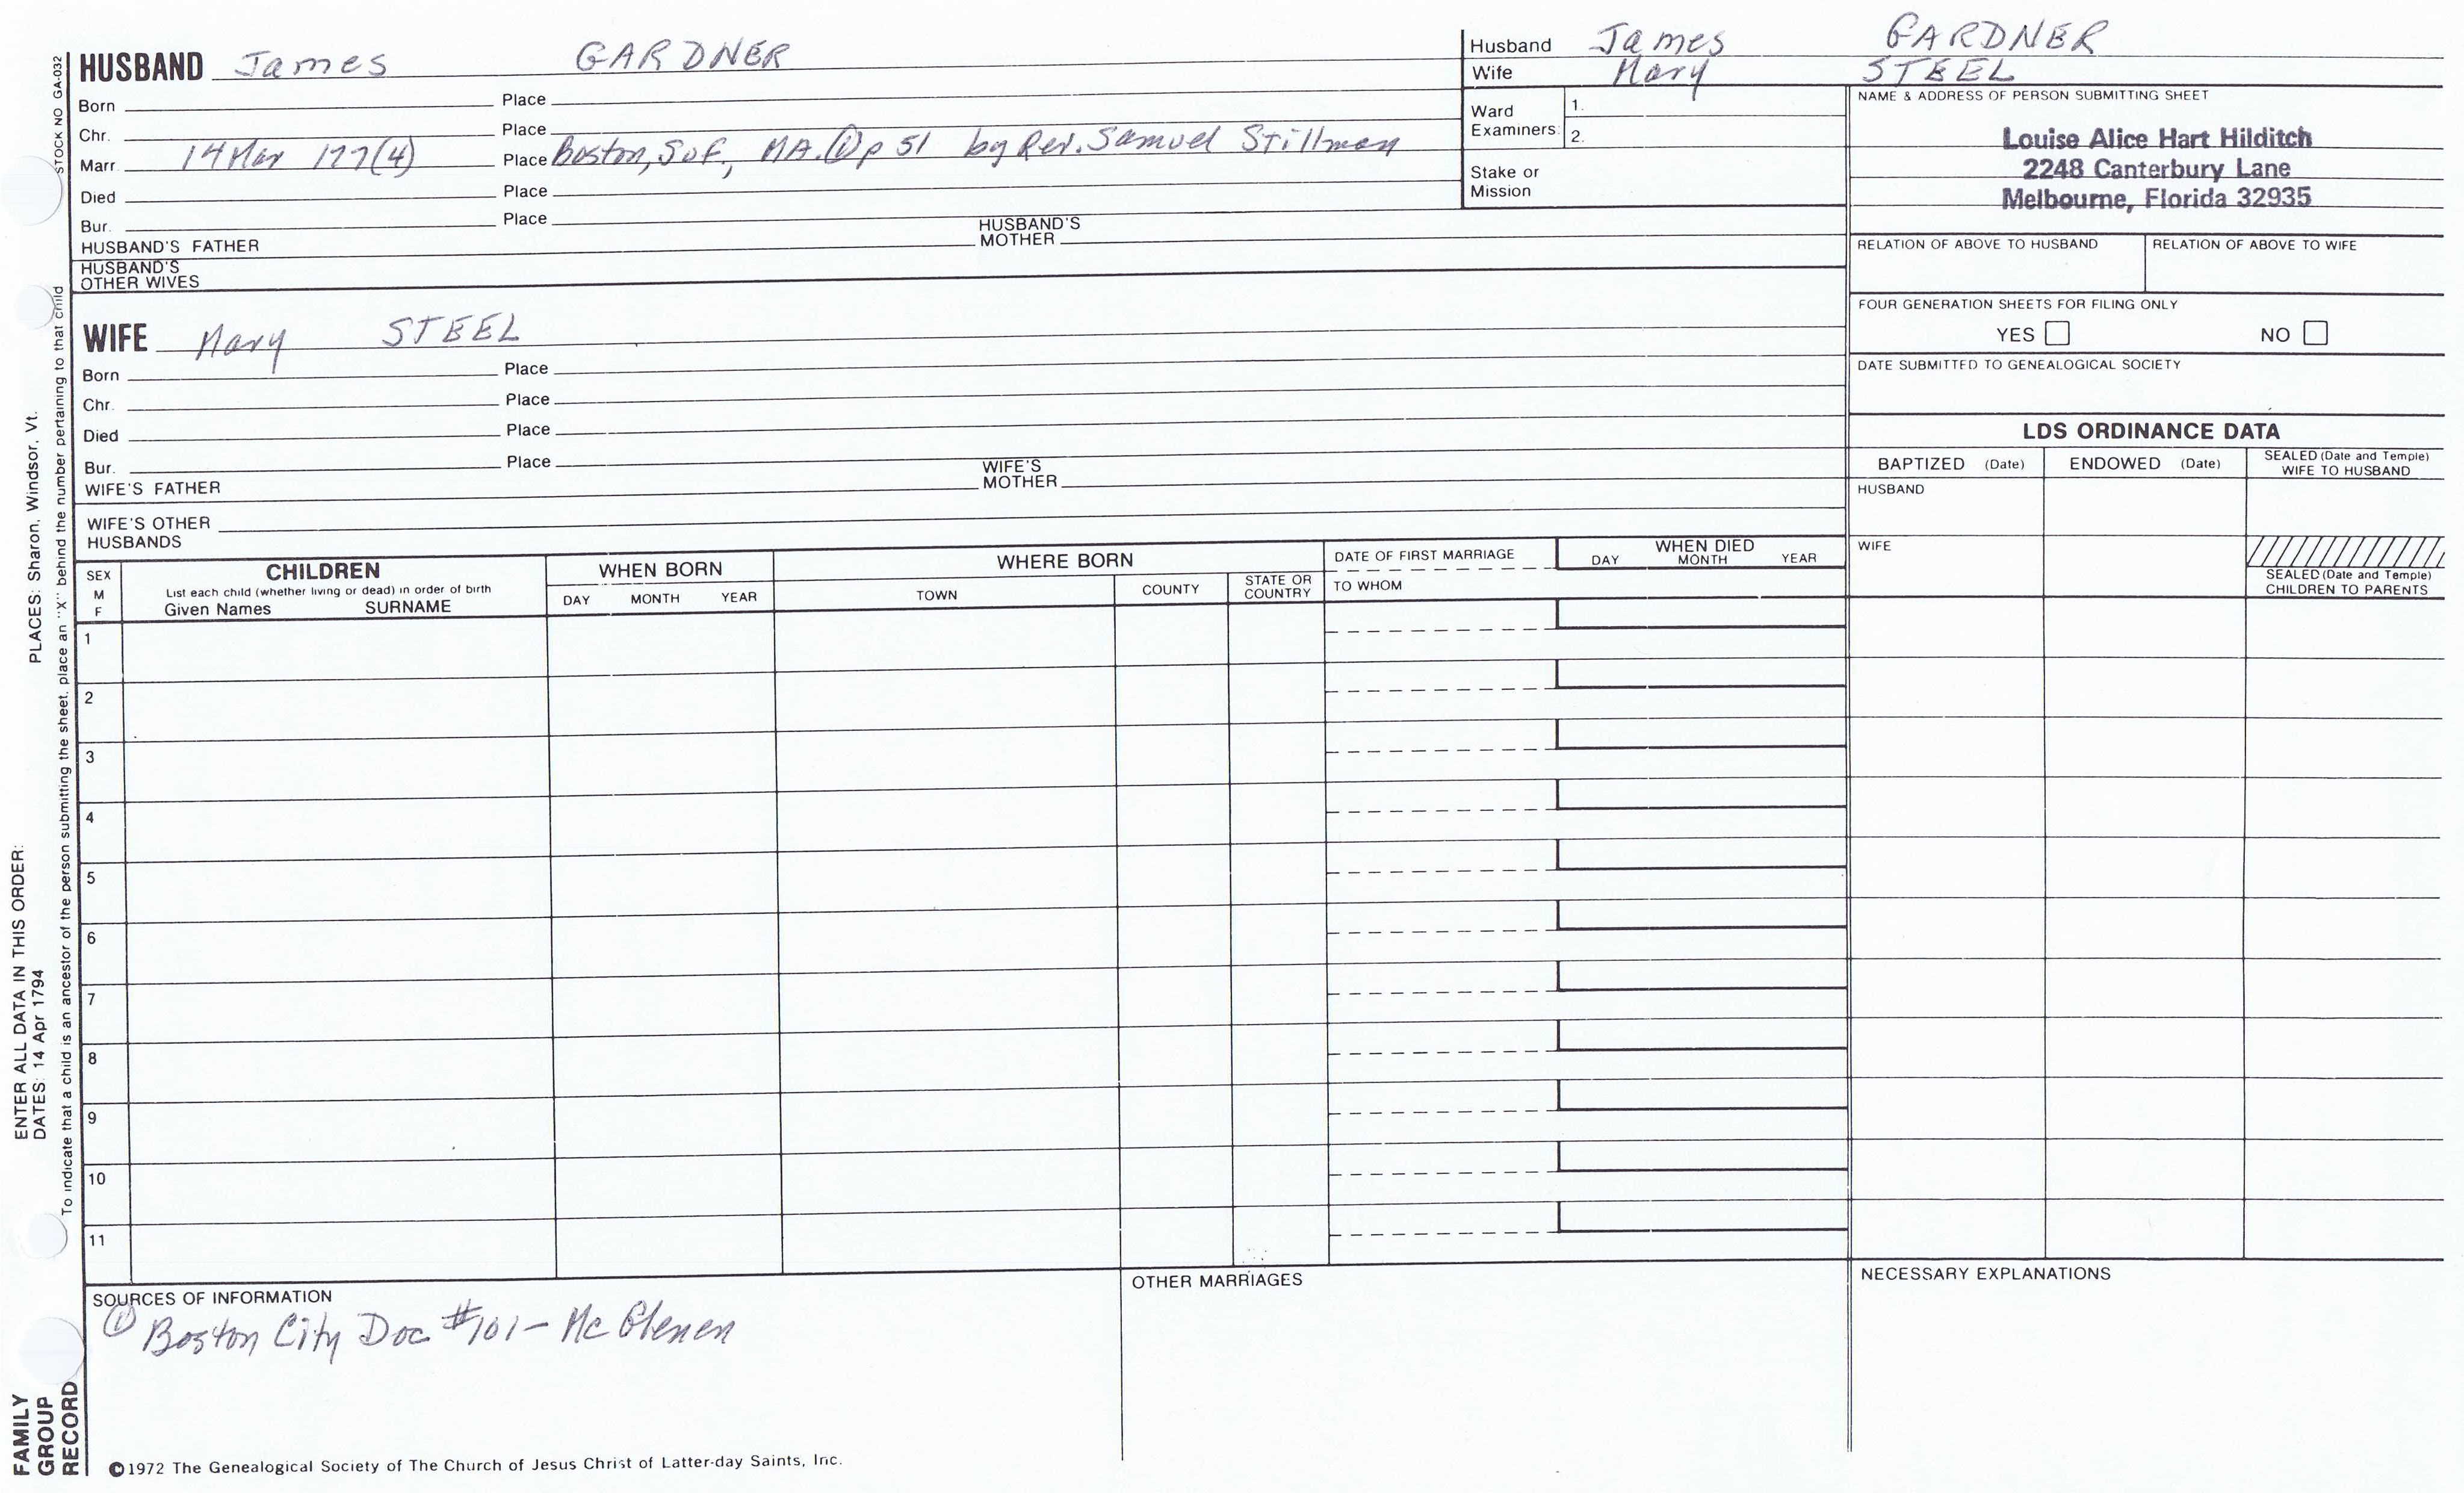 STOCK NO GA-032
HUSBAND James GARDNER
Born Place
Chr. Place
Marr. 14 Mar 177(4) Place Boston, Suf., MA. ① p 51 by Rev. Samuel Stillman
Died Place
Bur. Place
HUSBAND'S FATHER HUSBAND'S MOTHER
HUSBAND'S OTHER WIVES
WIFE Mary STEEL
Born Place
Chr. Place
Died Place
Bur. Place
WIFE'S FATHER WIFE'S MOTHER
WIFE'S OTHER HUSBANDS
Husband James GARDNER
Wife Mary STEEL
Ward Examiners: 1.
2.
Stake or Mission
NAME & ADDRESS OF PERSON SUBMITTING SHEET
Louise Alice Hart Hilditch
2248 Canterbury Lane
Melbourne, Florida 32935
RELATION OF ABOVE TO HUSBAND RELATION OF ABOVE TO WIFE
FOUR GENERATION SHEETS FOR FILING ONLY
YES NO
DATE SUBMITTED TO GENEALOGICAL SOCIETY
LDS ORDINANCE DATA
BAPTIZED (Date) ENDOWED (Date) SEALED (Date and Temple) WIFE TO HUSBAND
HUSBAND
WIFE
SEALED (Date and Temple) CHILDREN TO PARENTS
SEX M F
CHILDREN
List each child (whether living or dead) in order of birth
Given Names SURNAME
WHEN BORN
DAY MONTH YEAR
WHERE BORN
TOWN COUNTY STATE OR COUNTRY
DATE OF FIRST MARRIAGE
TO WHOM
WHEN DIED
DAY MONTH YEAR
1
2
3
4
5
6
7
8
9
10
11
SOURCES OF INFORMATION
① Boston City Doc #101 - McGlenen
OTHER MARRIAGES
NECESSARY EXPLANATIONS
©1972 The Genealogical Society of The Church of Jesus Christ of Latter-day Saints, Inc.
FAMILY GROUP RECORD
ENTER ALL DATA IN THIS ORDER:
DATES: 14 Apr 1794 PLACES: Sharon, Windsor, Vt.
To indicate that a child is an ancestor of the person submitting the sheet, place an "X" behind the number pertaining to that child